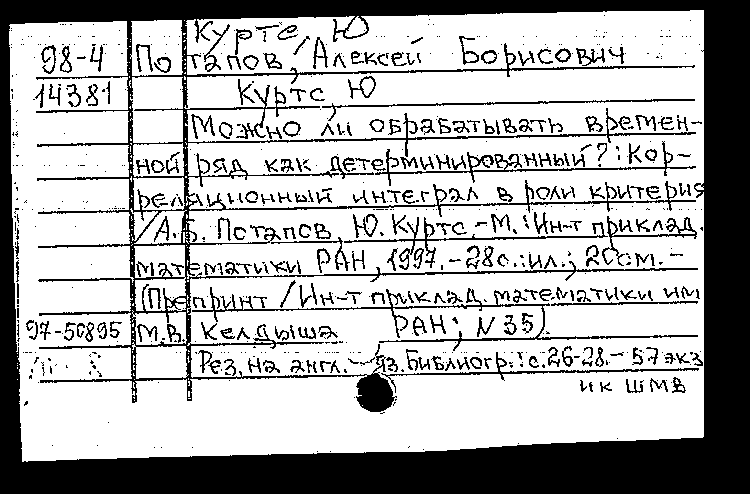 Куртс, Ю
98-4 Потапов, Алексей Борисович
14381 Куртс, Ю
Можно ли обрабатывать времен-
ной ряд как детерминированный? : Кор-
реляционный интеграл в роли критерия
/А.Б. Потапов, Ю. Куртс.-М.:Ин-т приклад.
математики РАН, 1997.-28с.:ил.; 20см.-
(Препринт /Ин-т приклад. математики им
97-50895 М.В. Келдыша РАН; N 35)
Рез. на англ. яз. Библиогр.: с.26-28.- 57 экз
ик шмв